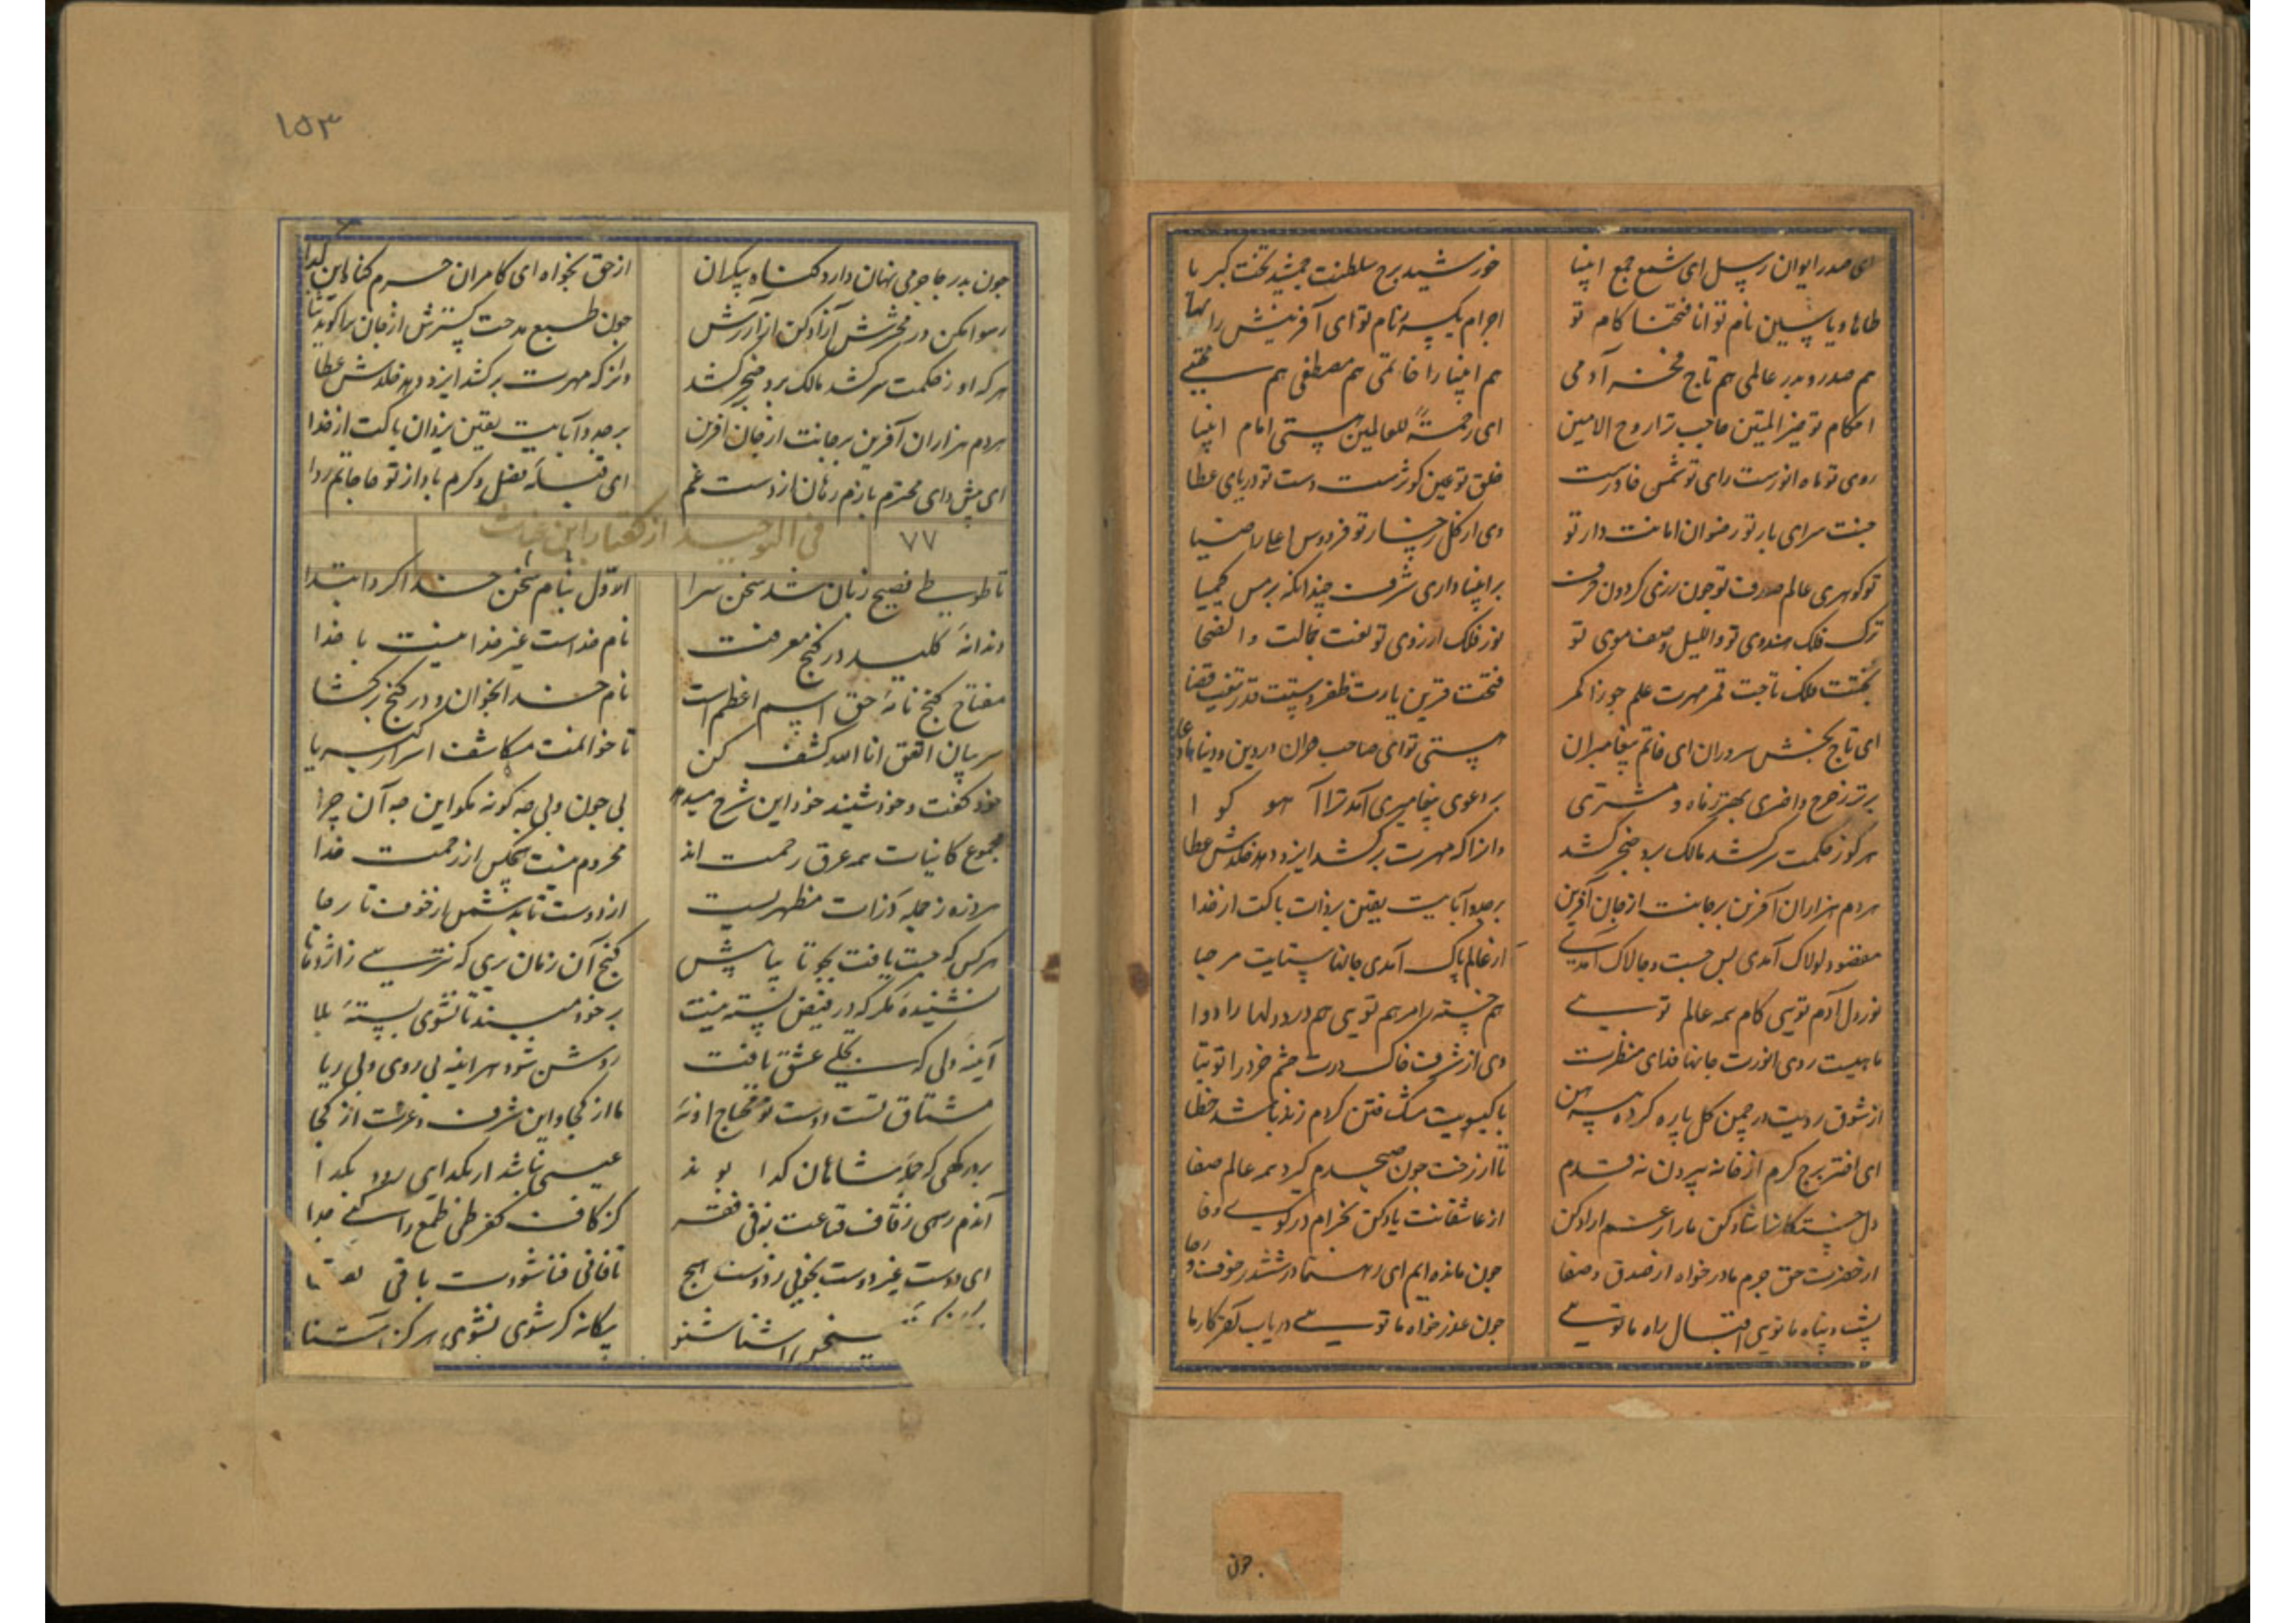 ای صدر ایوان رسل ای شمع جمع انبیا خورشید برج سلطنت جمشید تخت کبریا
طاها و یاسین نام تو انا فتحنا کام تو اجرام یکسر رام تو ای آفرینش را بها
هم صدر و بدر عالمی هم تاج فخر آدمی هم انبیا را خاتمی هم مصطفی هم مجتبی
احکام تو خیر المتین حاجب ترا روح الامین ای رحمة للعالمین هستی امام انبیا
روی تو ماه انورست رای تو شمس خاورست خلق تو عین کوثرست دست تو دریای عطا
جنت سرای بار تو رضوان امانت دار تو وی از کل رخسار تو فردوس اعلی را ضیا
تو کوهری عالم صدف تو چون رزی کردون خزف بر انبیا داری شرف چندانکه بر مس کیمیا
ترک فلک هندوی تو واللیل وصف موی تو نور فلک از روی تو نعت جمالت والضحا
تختت فلک تاجت قمر مهرت علم جوزا کمر فتحت قرین یارت ظفر دستت قدر تیغت قضا
ای تاج بخش سروران ای خاتم پیغامبران هستی تو ای صاحب قران در دین و دنیا
برتر ز چرخ و اختری بهتر ز ماه و مشتری بر دعوی پیغامبری آمد ترا آهو کوا
هر کو ز حکمت سر کشد مالک برو خنجر کشد وانرا که مهرت بر کشد ایزد دهد خلدش عطا
هر دم هزاران آفرین بر جانت از جان آفرین بر جد و آبایت یقین بر ذات پاکت از خدا
مقصود لولاک آمدی بس چست و چالاک آمدی از عالم پاک آمدی جانها ستایت مرحبا
نور دل آدم تویی کام همه عالم تویی هم خسته را مرهم تویی هم درد دلها را دوا
ماهیست روی انورت جانها فدای منظرت وی از شرف خاک درت چشم خرد را توتیا
از شوق رویت در چمن کل پاره کرده پیرهن با کیسویت مشک ختن کر دم زند باشد خطا
ای اختر برج کرم از خانه بیرون نه قدم تا از رخت چون صبحدم کیرد همه عالم صفا
دل خستکانرا شاد کن ما را ز غم ازاد کن از عاشقانت یاد کن بخرام در کوی وفا
از حضرت حق جرم ما در خواه از صدق و صفا چون مانده ایم ای رهنما در ششدر خوف و رجا
پشت و پناه ما تویی اقبال راه ما تویی چون عذر خواه ما تویی دریاب آخر کار ما
چون
۱۵۳
چون بدر جاجرمی نهان دارد کناه بیکران از حق بخواه ای کامران جرم کناه این کدا
رسوا مکن در محشرش آزاد کن از آذرش چون طبع مدحت کسترش از جان ترا کوید ثنا
هر که او ز حکمت سر کشد مالک برو خنجر کشد وانرا که مهرت بر کشد ایزد دهد خلدش عطا
هر دم هزاران آفرین بر جانت از جان آفرین بر جد و آبایت یقین یزدان پاکت از خدا
ای محترم بازم رهان از دست غم ای قبلهٔ فضل و کرم باد از تو حاجاتم روا
۷۷ فی التوحید از کفتار ابن غیاث
تا طوطی فصیح زبان شد سخن سرا اول بنام سخن خدا کرد ابتدا
دندانهٔ کلید در کنج معرفت نام خداست غیر خدا نیست با خدا
مفتاح کنج نامهٔ حق اسم اعظم است نام خدا بخوان و در کنج بر کشا
سر بیان انطق انا الله کشف کن تا خوانمت مکاشف اسرار کبریا
خود کفت و خود شنید خود این شرح میدهد بی چون و بی چه کونه مکو این چه آن چرا
مجموع کاینات همه غرق رحمت اند محروم نیست هیچکس از رحمت خدا
هر ذره ز جمله ذرات مظهریست از اوست تابد شمس از خوف تا رجا
هر کس که جست یافت بجو تا بیابیش کنج آن زمان بری که نترسی ز اژدها
نشنیدهٔ مکر که در فیض بسته نیست بر خود مبند تا نشوی بستهٔ بلا
آینه دلی که تجلی عشق یافت روشن شود هر آینه بی روی و بی ریا
مشتاق تست دوست تو محتاج او نهٔ ما از کجا و این شرف و عزت از کجا
در درکهی که جمله شاهان کدا بوند عیبی نباشد ار بکدایی رود کدا
آندم رسی ز قاف قناعت بنوفی فقر کز کاف کفر طی طمع را کنی جدا
ای دوست غیر دوست نجویی ز دوست هیچ تا فانی فنا نشودت باقی بقا
سخن آشنا شنو بیکانه کر شوی نشوی هرکز آشنا